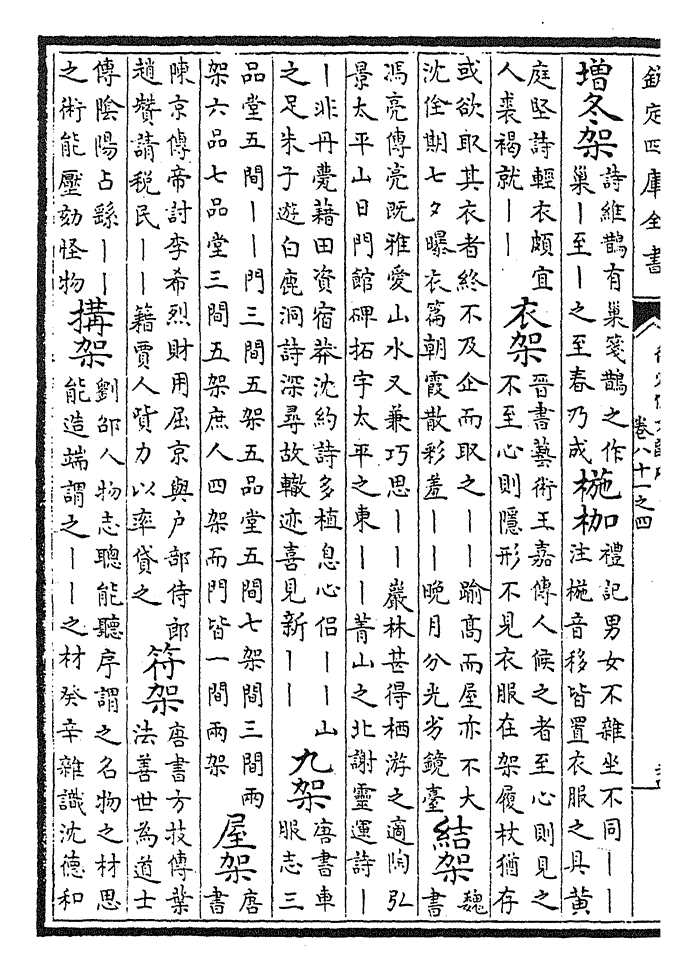 欽定四庫全書
卷八十一之四
增冬架
詩維鵲有巢箋鵲之作
巢丨至丨之至春乃成
椸枷
禮記男女不雜坐不同丨丨
注椸音移皆置衣服之具黄
庭堅詩輕衣頗宜
人裘褐就丨丨
衣架
晉書藝術王嘉傳人候之者至心則見之
不至心則隱形不見衣服在架履杖猶存
或欲取其衣者終不及企而取之丨丨踰高而屋亦不大
沈佺期七夕曝衣篇朝霞散彩羞丨丨晚月分光劣鏡臺
結架
魏
書
馮亮傳亮既雅愛山水又兼巧思丨丨巖林甚得栖游之適陶弘
景太平山日門館碑拓宇太平之東丨丨菁山之北謝靈運詩丨
丨非丹甍藉田資宿莽沈約詩多植息心侶丨丨山
之足朱子遊白鹿洞詩深尋故轍迹喜見新丨丨
九架
唐書車
服志三
品堂五間丨丨門三間五架五品堂五間七架間三間兩
架六品七品堂三間五架庶人四架而門皆一間兩架
屋架
唐
書
陳京傳帝討李希烈財用屈京與户部侍郎
趙贊請税民丨丨籍賈人貲力以率貸之
符架
唐書方技傳葉
法善世為道士
傳陰陽占繇丨丨
之術能壓劾怪物
搆架
劉邵人物志聰能聽序謂之名物之材思
能造端謂之丨丨之材癸辛雜識沈德和